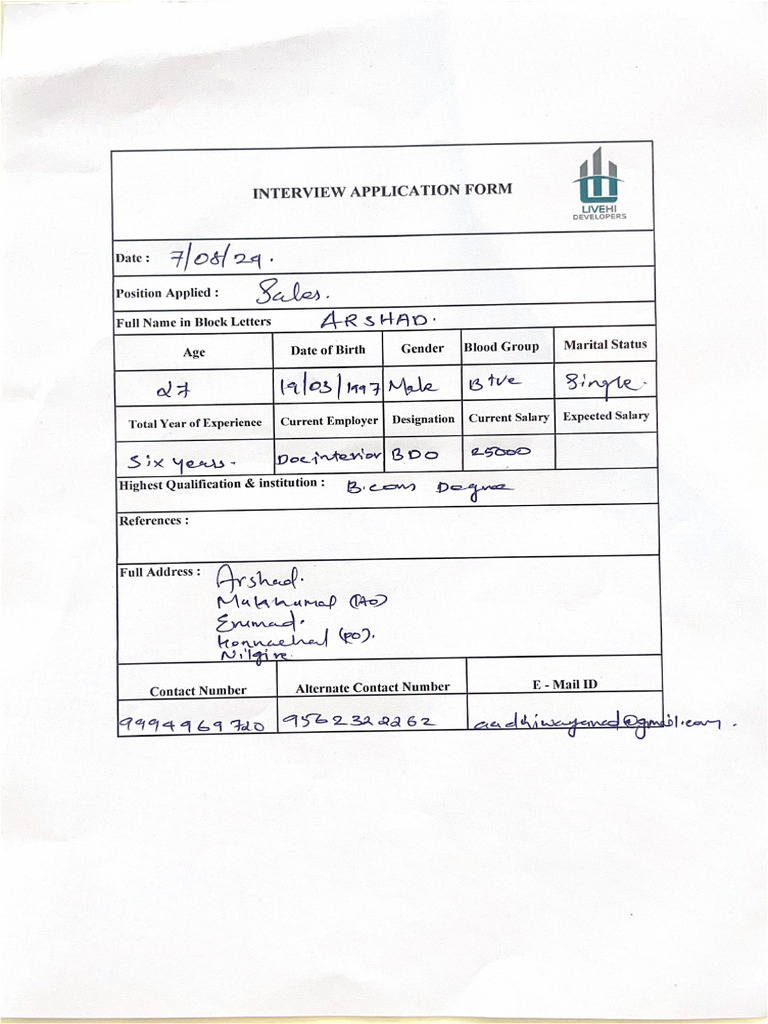 INTERVIEW APPLICATION FORM
LIVEHI
DEVELOPERS
Date : 7/08/24.
Position Applied : Sales.
Full Name in Block Letters ARSHAD.
Age Date of Birth Gender Blood Group Marital Status
27 19/03/1997 Male B+ve Single.
Total Year of Experience Current Employer Designation Current Salary Expected Salary
Six years. Docinterior BDO 25000
Highest Qualification & institution : B.com Degree
References :
Full Address : Arshad.
(PO)
Erumad.
(PO).
Nilgire
Contact Number Alternate Contact Number E - Mail ID
9994969720 9562322262 aadhiwayanad@gmail.com.